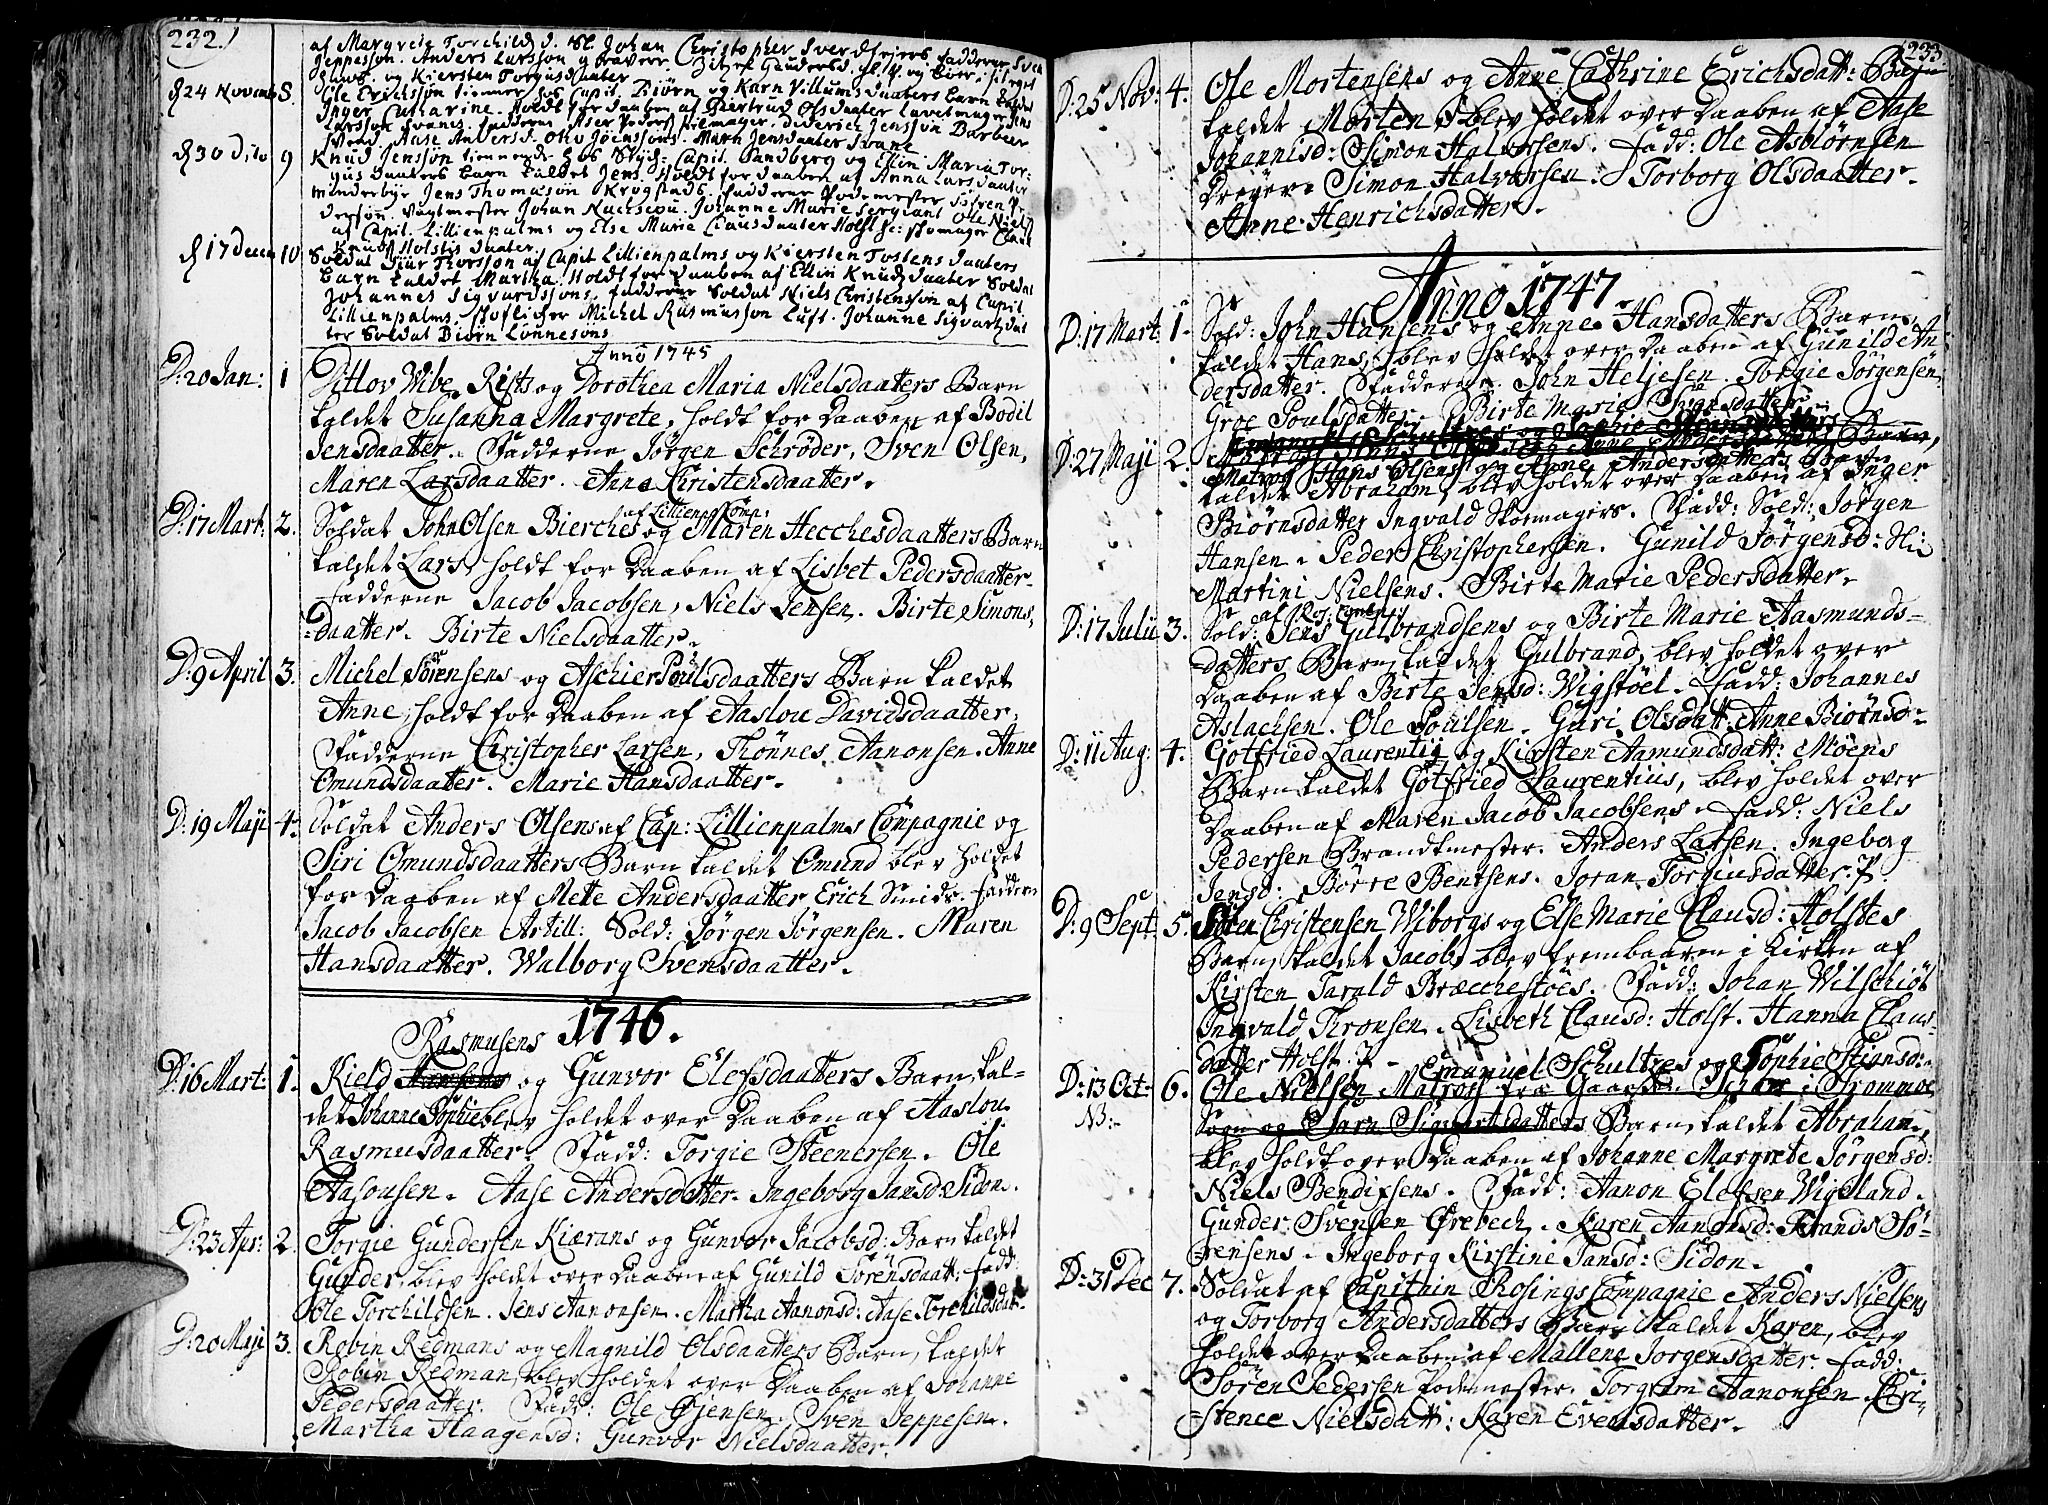 232.)
af Margrete Torchilds d. Sl. Johan Christopher Sverdfejers fadderne Sven
Jeppesson. Anders Larsson graver.
Laws. og Kiersten Torgiusdaater
d 24 Novemb 8. Ole Erichsson tienner hos Capit. Biørn og Karn Villumsdaaters barn kaldet
Inger Catharine. holdt for daaben af Giertrud Olsdaater Lavetmager Jens
Larsson Svanes. fadderne Aser Peders Pilmager. Diderich Jensson Barbeer
Svend. Aase Andersd. Otto Joenssøns. Marn Jensdaater Svane
d 30 Dito 9 Knud Jensson tiennende hos Capit. Sandberg og Ellin Maria Tor:
gus daaters barn kaldet Jens. Holdt for daaben af Anna Lars daater
Jens Thomasøn Krogstads. fadderne Fodemester Søfren Pe
dersøn. Vagtmester Johan Johanne Marie Sergiant Ole Niels
af Capit. Lillienpalms og Else Marie Clausdaater Holst Sc: skomager Claus
Knuds Holstis daater
d 17 Decem 10 Soldat Siur Thorsson af Capit Lillienpalms og Kiersten Tostens daaters
barn kaldet Martha. Holdt for daaben af Ellin Knudsdaater Soldat
Johannes Sigvardssøns. fadderne Soldat Niels Christensson af Capit
Lillienpalms. skoflicher Michel Rasmusson Luft. Johanne Sigvartsdat
ter Soldat Biørn Lonnesøns
Anno 1745
D: 20 Jan: 1 Ditlov Wibe Rists og Dorothea Maria Nielsdaatters Barn
kaldet Susanna Margrete, holdt for Daaben af Bodil
Jensdaatter. Fadderne Jørgen Schrøder, Sven Olsen,
Maren Larsdaatter. Anna Christensdaatter.
af Lillienp: Comp:
D: 17 Mart: 2. Soldat John Olsen Bierches og Maren Hecchesdaatters Barn
kaldet Lars, holdt for Daaben af Lisbet Pedersdaatter
Fadderne Jacob Jacobsen, Niels Jensen. Birte Simons
daatter. Birte Nielsdaatter.
D: 9 April 3. Michel Sørensens og Aschier Poulsdaatters Barn kaldet
Anne, holdt for Daaben af Aaslou Davidsdaatter.
Fadderne Christopher Larsen, Thonnes Aanonsen. Anne
Omundsdaatter. Marie Hansdaatter.
D: 19 Maji 4. Soldat Anders Olsens af Cap: Lillienpalms Compagnie og
Siri Omundsdaatters Barn kaldet Omund blev holdet
for Daaben af Mette Andersdaatter Erich Smids. faddern
Jacob Jacobsen Artill: Sold: Jørgen Jørgensen. Maren
Hansdaatter. Walborg Svensdaatter.
1746.
Rasmusens
D: 16 Mart: 1. Kield Hansens og Gunvor Elefsdaatters Barn kal-
det Johanne Sophie blev holdet over Daaben af Aaslou
Rasmusdaatter. Fadd: Torgie Steenersen. Ole
Aasousen. Aase Andersdatter. Ingeborg Jansd: Sidon.
D: 23 Apr: 2. Torgie Gundersen Kierans og Gunvor Jacobsd: Barn kaldet
Gunder, blev holdet over Daaben af Gunild Sørensdaatt: fadd:
Ole Torchildsen. Jens Aanonsen. Martha Aanonsd: Aase Torchildsdat-
D: 20 Maji 3. Robin Redmans og Magnild Olsdaatters Barn, kaldet
Robin Redman, blev holdet over Daaben af Johanne
Pedersdaatter. Fadd: Ole Øjensen. Sven Jeppesen.
Martha Haagensd: Gunvor Nielsdaatter.
233.
D: 25 Nov: 4. Ole Mortensens og Anne Cathrine Erichsdatt: Barn
kaldet Morten blev holdet over Daaben af Aase
Johannisd: Simon Halvorsens. Fadd: Ole Asbiørnsen
Dreyer. Simon Halvorsen. Torborg Olsdaatter.
Anne Henrichsdatter.
Anno 1747
D: 17 Mart: 1. Sold: John Hansens og Anne Hansdatters Barn,
kaldet Hans, blev holdet over Daaben af Gunild An
dersdatter. Fadderne. John Heljesen, Torgie Jørgensen,
Groe Poulsdatter. Birte Marie
D: 27 Maji 2. Matros Hans Olsens og Anne Andersdatters Barn
kaldet Abraham, blev holdet over Daaben af Inger
Biørnsdatter Ingvald Skoemagers. Fadd: Sold: Jørgen
Hansen. Peder Christophersen. Gunild Jørgensd:
Martini Nielsens. Birte Marie Pedersdatter.
af Ros: Comp:
D: 17 Julii 3. Sold: Jens Gulbrandsens og Birte Marie Aasmunds-
datters Barn kaldet Gulbrand, blev holdet over
Daaben af Birte Jensd: Wigstøel. Fadd: Johannes
Aslachsen. Ole Poulsen. Guri Olsdatt: Anne Biørnsd-
D: 11 Aug: 4. Gotfried Laurentig og Kirsten Aamundsdatt: Møens
Barn kaldet Gotfried Laurentius, blev holdet over
Daaben af Maren Jacob Jacobsens. Fadd: Niels
Pedersen Brandtmester. Anders Larsen. Ingeborg
Jensd: Børre Bentsens. Joran Torgiusdatter. P.
D: 9 Sept: 5. Søren Christensen Wiborgs og Else Marie Clausd: Holstes
Barn, kaldet Jacob, blev frembaaren i Kirken af
Kirsten Tarald Bræcchestøes. Fadd: Johan Wilschiøt
Ingvald Thronsen. Lisbeth Clausd: Holst. Hanna Claus-
datter Holst. P -
Emanuel Schultzes og Sophie Stiansd:
D: 13 Oct: 6. Ole Nielsen Matros fra Gaarden i Trommøe
NB: Sogn og Siøren Sigvertsdatters Barn, kaldet Abraham,
blev holdt over Daaben af Johanne Margrete Jørgensd:
Niels Bendixsens. Fadd: Aanon Elefsen Wigeland.
Gunder Svensen Ørebech. Karen Aanonsd: Trands Sø-
rensens. Ingeborg Kirstine Jansd: Sidon.
D: 31 Dec 7. Soldat af Capitain Rosings Compagnie Anders Nielsens
og Torborg Andersdatters Barn kaldet Karen, blev
holdet over Daaben af Mallene Jørgensdatter. Fadd:
Søren Pedersen Fodemester. Torgrim Aanonsen. Chri-
stence Nielsdatt: Karen Evensdatter.